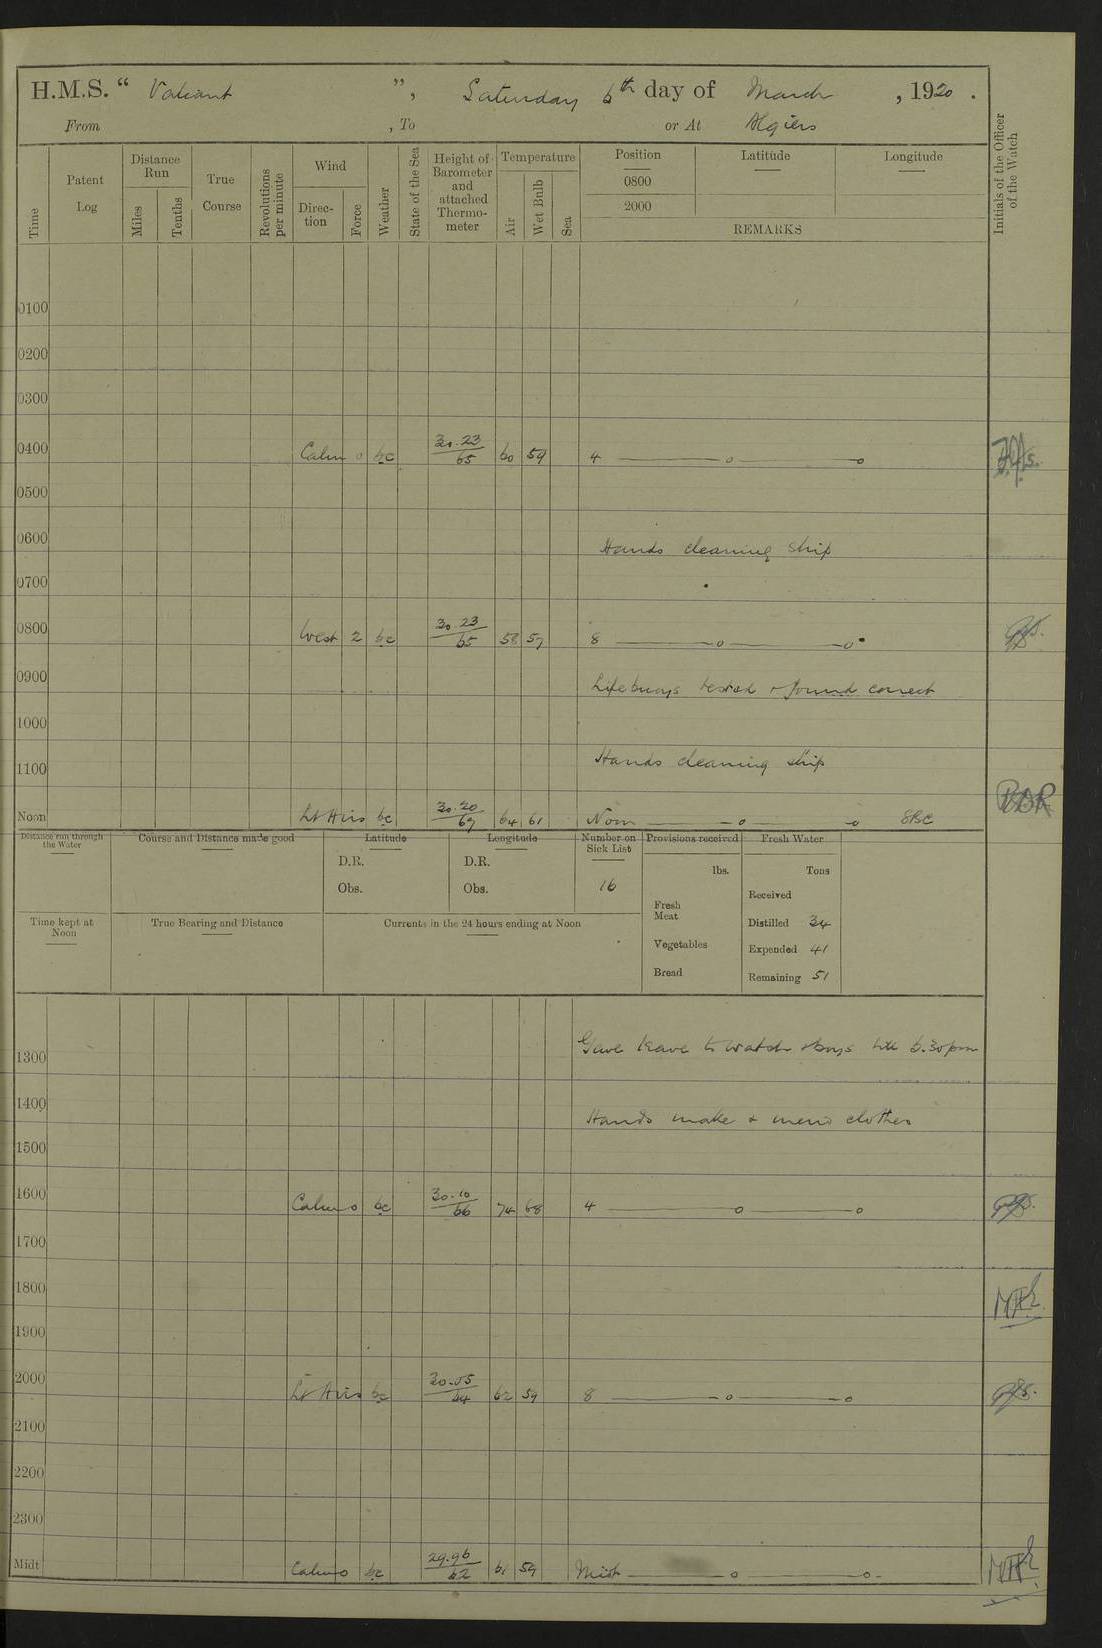 H.M.S. “ Valiant ”, Saturday 6th day of March , 1920 .
From , To or At Algiers
Time
Patent Log
Distance Run
Miles
Tenths
True Course
Revolutions per minute
Wind
Direc- tion
Force
Weather
State of the Sea
Height of Barometer and attached Thermo- meter
Temperature
Air
Wet Bulb
Sea
Position
0800
2000
Latitude
Longitude
REMARKS
Initials of the Officer of the Watch
0100
0200
0300
0400 Calm 0 bc 30.23 65 60 59 4 —o—o
0500
0600 Hands cleaning ship
0700
0800 West 2 bc 30.23 65 58 57 8 —o—o
0900 Lifebuoys tested & found correct
1000
1100 Hands cleaning ship
Noon Lt Airs bc 30.20 69 64 61 Noon —o—o
Distance run through the Water
Course and Distance made good
Latitude
D.R.
Obs.
Longitude
D.R.
Obs.
Number on Sick List
16
Provisions received
lbs.
Fresh Meat
Vegetables
Bread
Fresh Water
Tons
Received
Distilled 34
Expended 41
Remaining 51
Time kept at Noon
True Bearing and Distance
Currents in the 24 hours ending at Noon
1300 Gave leave to watch & boys till 6.30pm
1400 Hands make & mend clothes
1500
1600 Calm 0 bc 30.10 66 74 68 4 —o—o
1700
1800
1900
2000 Lt Airs bc 30.05 64 62 59 8 —o—o
2100
2200
2300
Midt Calm 0 bc 29.96 62 61 59 Midt —o—o